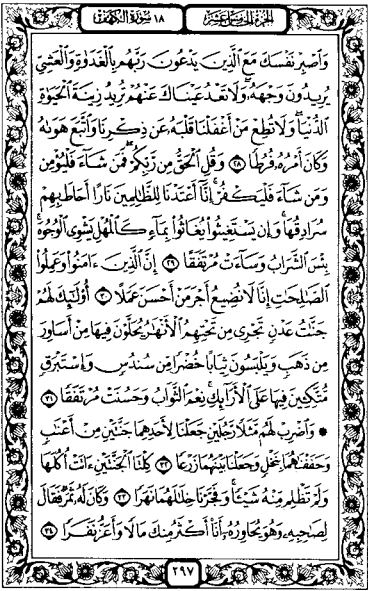 الجزء الخامس عشر ١٨ سورة الكهف
وَاصْبِرْ نَفْسَكَ مَعَ الَّذِينَ يَدْعُونَ رَبَّهُم بِالْغَدَوٰةِ وَالْعَشِيِّ
يُرِيدُونَ وَجْهَهُۥ ۖ وَلَا تَعْدُ عَيْنَاكَ عَنْهُمْ تُرِيدُ زِينَةَ الْحَيَوٰةِ
الدُّنْيَا ۖ وَلَا تُطِعْ مَنْ أَغْفَلْنَا قَلْبَهُۥ عَن ذِكْرِنَا وَاتَّبَعَ هَوَىٰهُ
وَكَانَ أَمْرُهُۥ فُرُطًا ٢٨ وَقُلِ الْحَقُّ مِن رَّبِّكُمْ ۖ فَمَن شَآءَ فَلْيُؤْمِن
وَمَن شَآءَ فَلْيَكْفُرْ ۚ إِنَّآ أَعْتَدْنَا لِلظَّٰلِمِينَ نَارًا أَحَاطَ بِهِمْ
سُرَادِقُهَا ۚ وَإِن يَسْتَغِيثُوا۟ يُغَاثُوا۟ بِمَآءٍ كَالْمُهْلِ يَشْوِى الْوُجُوهَ ۚ
بِئْسَ الشَّرَابُ وَسَآءَتْ مُرْتَفَقًا ٢٩ إِنَّ الَّذِينَ ءَامَنُوا۟ وَعَمِلُوا۟
الصَّٰلِحَٰتِ إِنَّا لَا نُضِيعُ أَجْرَ مَنْ أَحْسَنَ عَمَلًا ٣٠ أُو۟لَٰٓئِكَ لَهُمْ
جَنَّٰتُ عَدْنٍ تَجْرِى مِن تَحْتِهِمُ الْأَنْهَٰرُ يُحَلَّوْنَ فِيهَا مِنْ أَسَاوِرَ
مِن ذَهَبٍ وَيَلْبَسُونَ ثِيَابًا خُضْرًا مِّن سُندُسٍ وَإِسْتَبْرَقٍ
مُّتَّكِـِٔينَ فِيهَا عَلَى الْأَرَآئِكِ ۚ نِعْمَ الثَّوَابُ وَحَسُنَتْ مُرْتَفَقًا ٣١
۞ وَاضْرِبْ لَهُم مَّثَلًا رَّجُلَيْنِ جَعَلْنَا لِأَحَدِهِمَا جَنَّتَيْنِ مِنْ أَعْنَٰبٍ
وَحَفَفْنَٰهُمَا بِنَخْلٍ وَجَعَلْنَا بَيْنَهُمَا زَرْعًا ٣٢ كِلْتَا الْجَنَّتَيْنِ ءَاتَتْ أُكُلَهَا
وَلَمْ تَظْلِم مِّنْهُ شَيْـًٔا ۚ وَفَجَّرْنَا خِلَٰلَهُمَا نَهَرًا ٣٣ وَكَانَ لَهُۥ ثَمَرٌ فَقَالَ
لِصَٰحِبِهِۦ وَهُوَ يُحَاوِرُهُۥٓ أَنَا۠ أَكْثَرُ مِنكَ مَالًا وَأَعَزُّ نَفَرًا ٣٤
٢٩٧